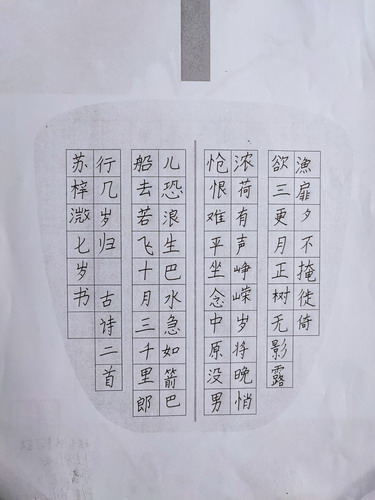 漁扉夕不掩徙倚
欲三更月正树无影露
浓荷有声峥嵘岁将晚悄
怆恨难平坐念中原没男
儿恐浪生巴水急如箭巴
船去若飞十月三千里郎
行几岁归 古诗二首
苏梓溦七岁书